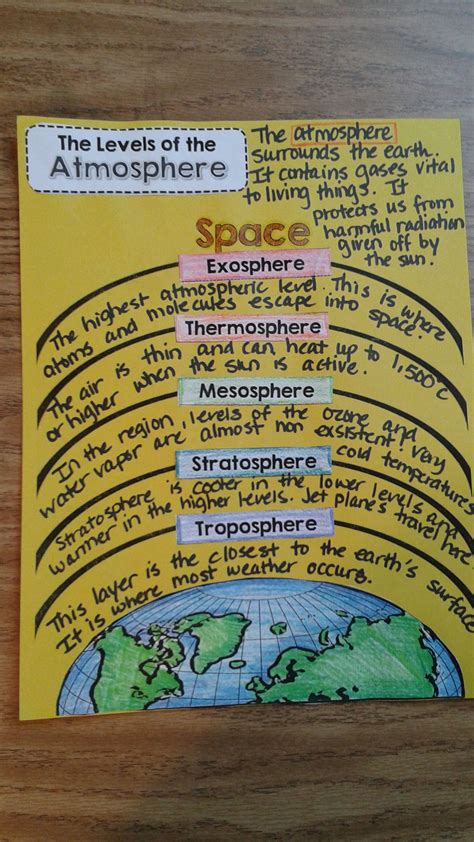 The Levels of the
Atmosphere
The atmosphere
surrounds the earth.
It contains gases vital
to living things. It
protects us from
harmful radiation
given off by
the sun.
Space
Exosphere
The highest atmospheric level. This is where
atoms and molecules escape into space.
Thermosphere
The air is thin and can heat up to 1,500°c
or higher when the sun is active.
Mesosphere
In the region, levels of the ozone and
water vapor are almost non exsistent. Very
cold temperatures
Stratosphere
Stratosphere is cooler in the lower levels and
warmer in the higher levels. Jet planes travel here
Troposphere
This layer is the closest to the earth's surface
It is where most weather occurs.